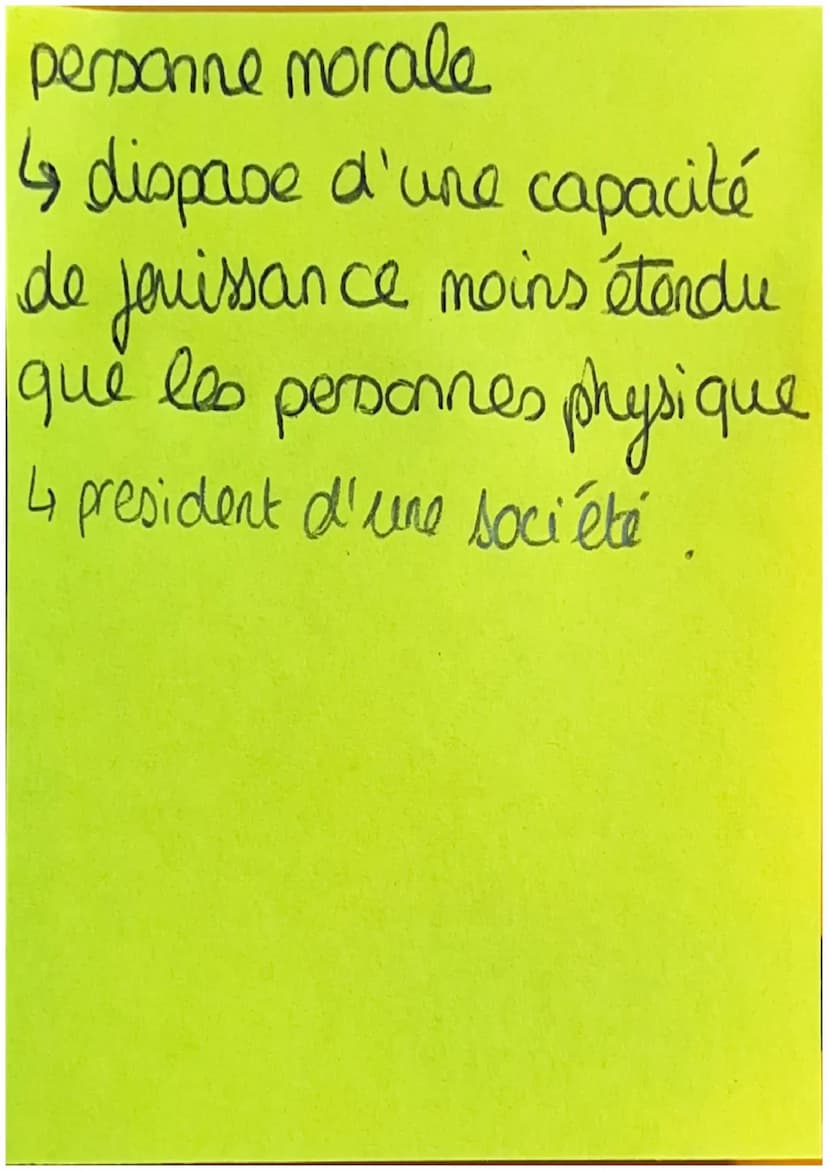 personne morale
↳ dispose d'une capacité
de jouissance moins étendu
que les personnes physique
↳ president d'une société.